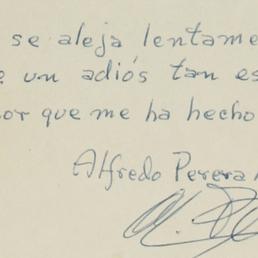 se aleja lentame
un adiós tan es
or que me ha hecho
Alfredo Perera